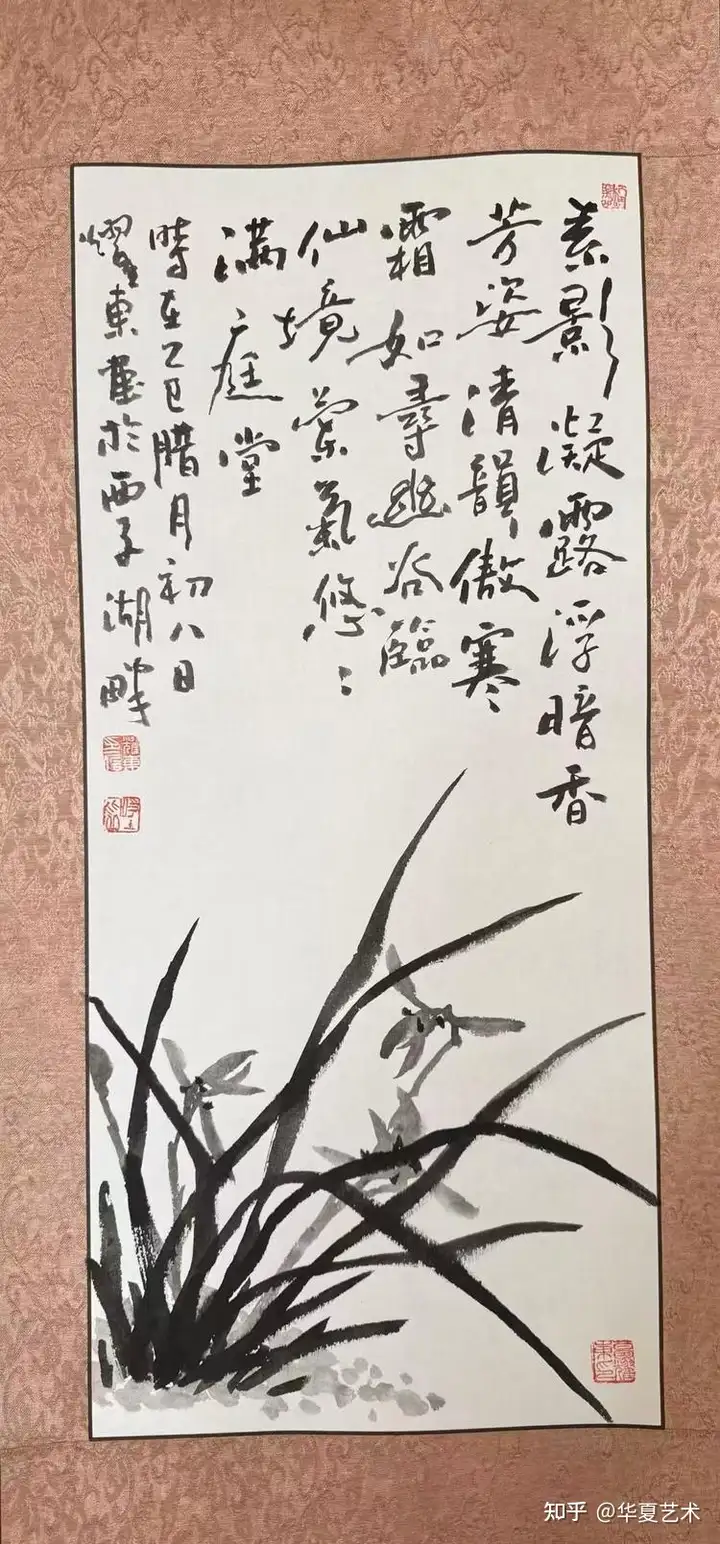 素影凝露浮暗香
芳姿清韻傲寒
霜如尋幽谷臨
仙境蘭氣悠〻
滿庭堂
時在乙巳腊月初八日
燿東畫於西子湖畔
知乎 @华夏艺术